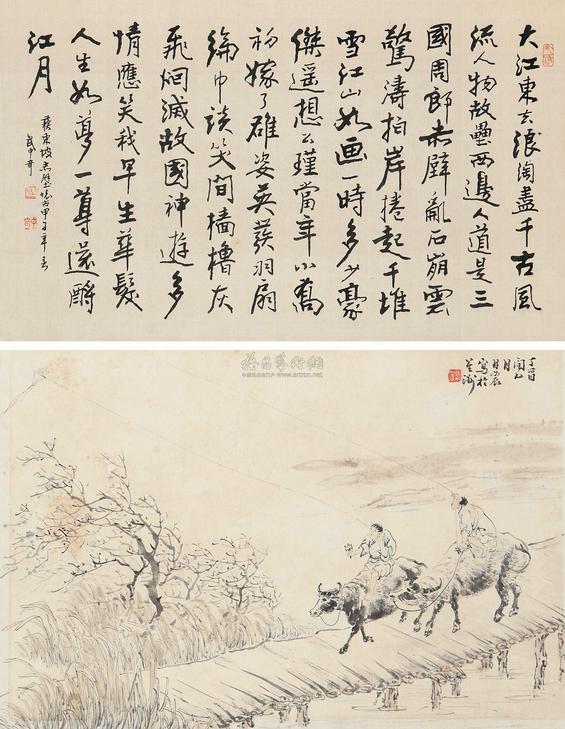 大江東去浪淘盡千古風
流人物故壘西邊人道是三
國周郎赤壁亂石崩雲
驚濤拍岸捲起千堆
雪江山如画一時多少豪
傑遥想公瑾當年小喬
初嫁了雄姿英發羽扇
綸巾談笑間檣櫓灰
飛烟滅故國神遊多
情應笑我早生華髮
人生如夢一尊還酹
江月
蘇東坡赤壁懷古甲子年春
武中奇
丁酉
月
寫於